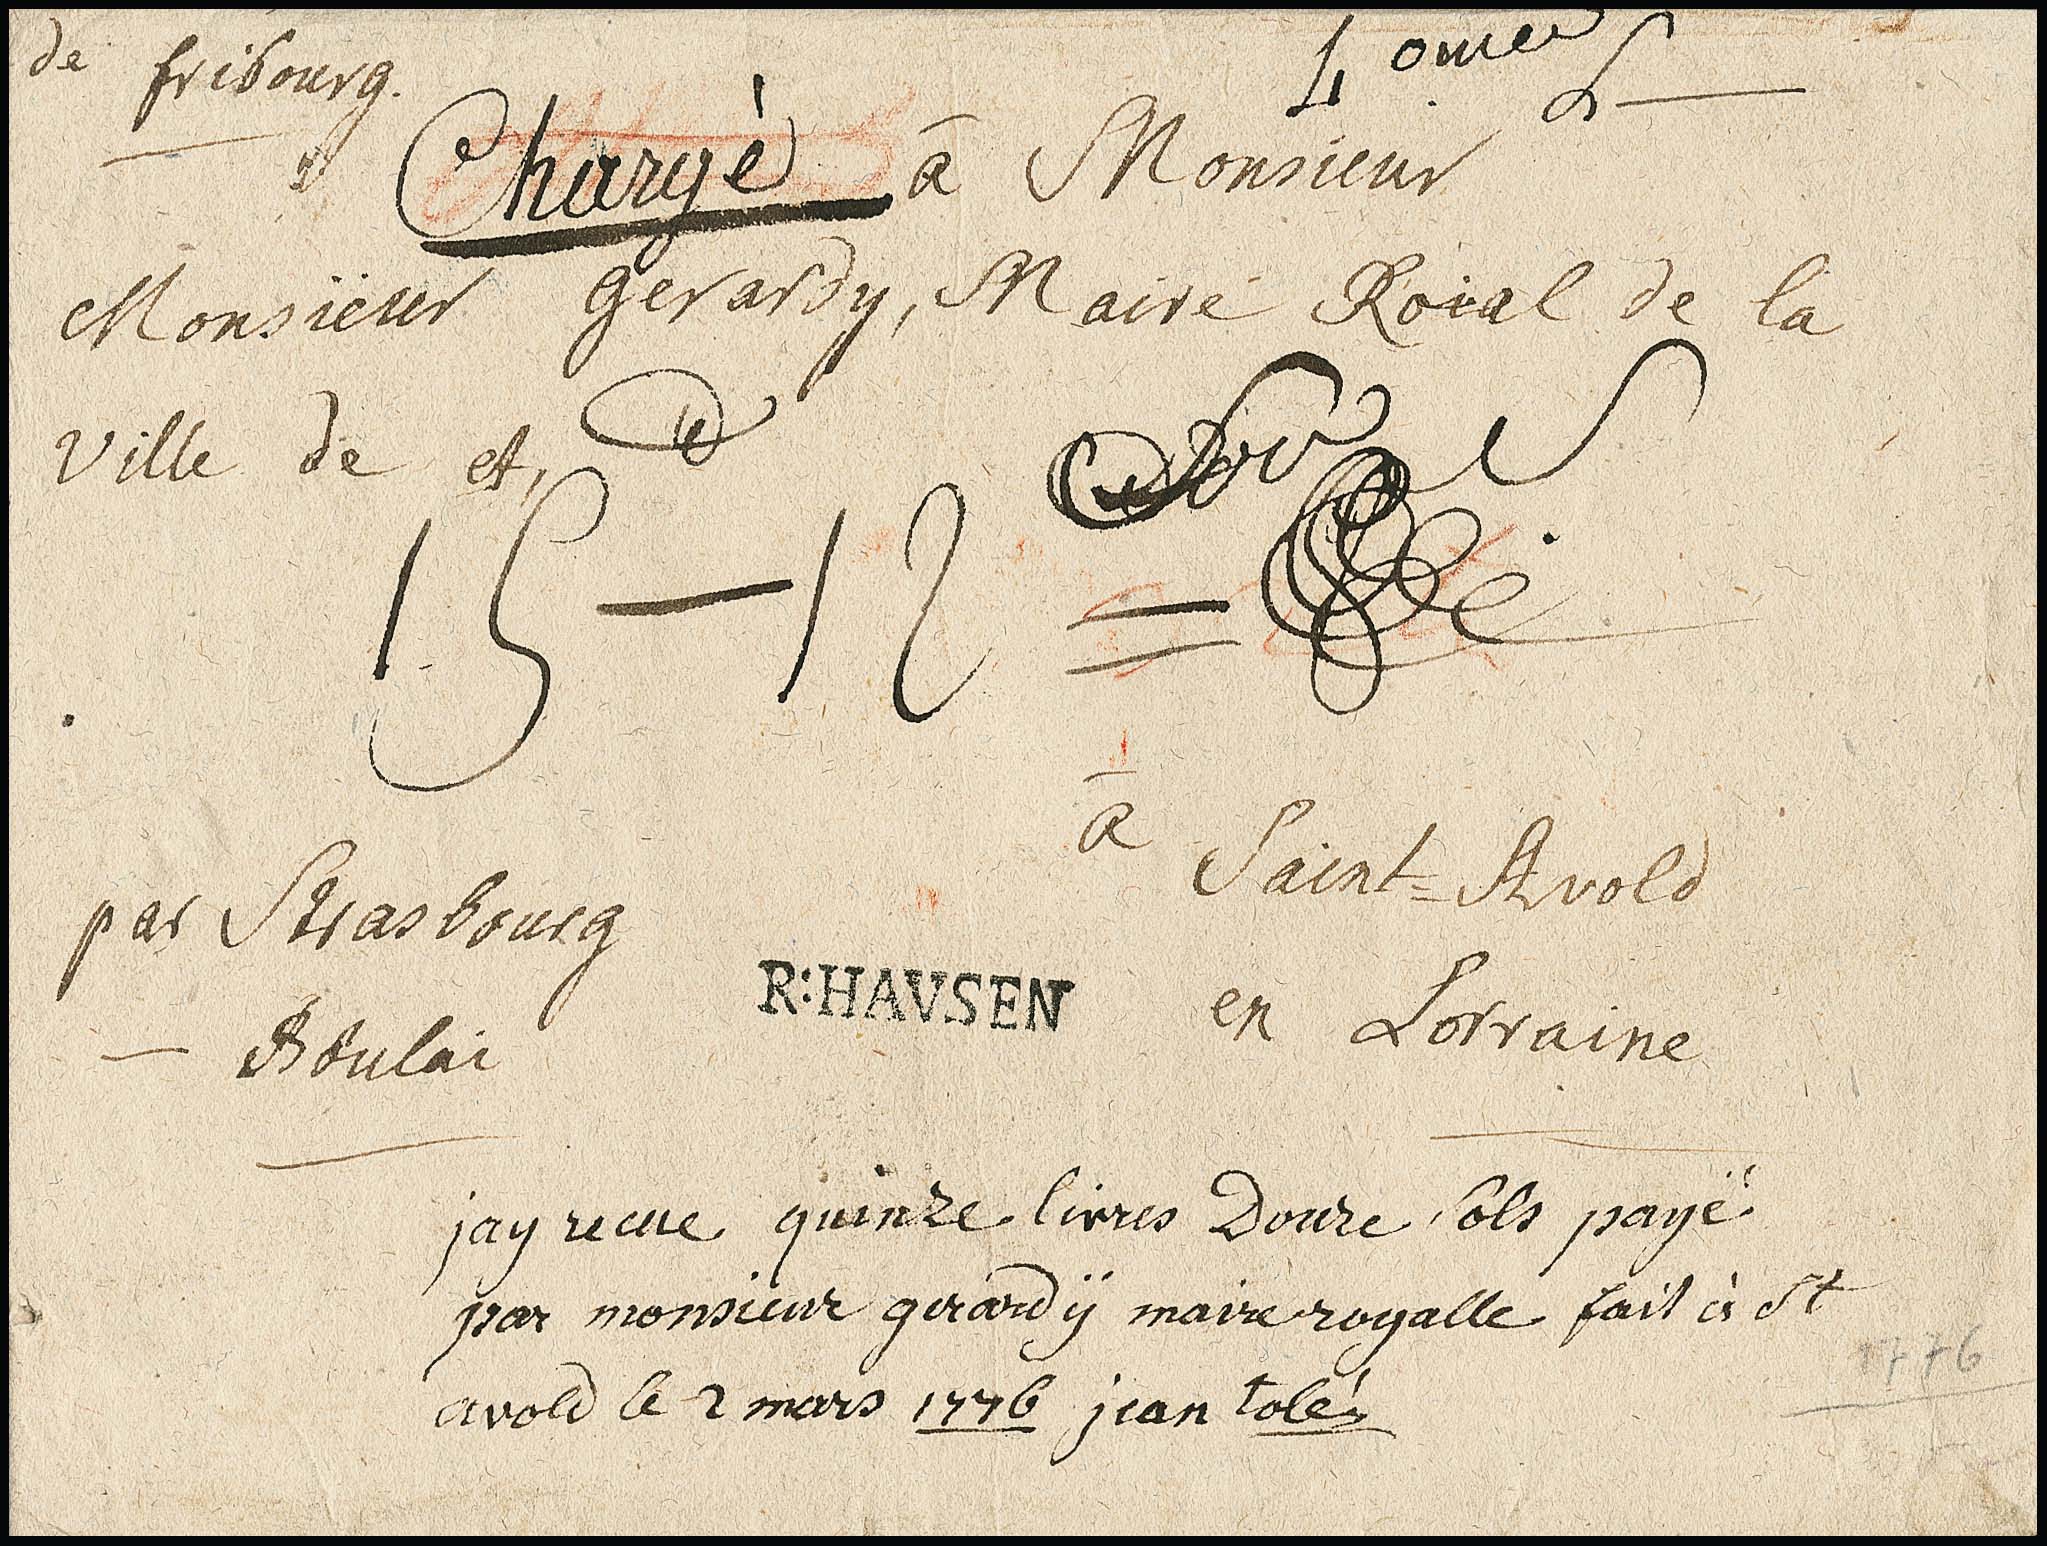 de fribourg.
4 onces
Chargé à Monsieur
Monsieur Gerardy, Maire Roial de la
Ville de et,
15 — 12 =
à Saint=Avold
par Strasbourg
R:HAVSEN
en Lorraine
— Boulai
jay recue quinze livres Douze sols payé
par monsieur gerardÿ maire royalle fait à St
avold le 2 mars 1776 jean tolé
1776